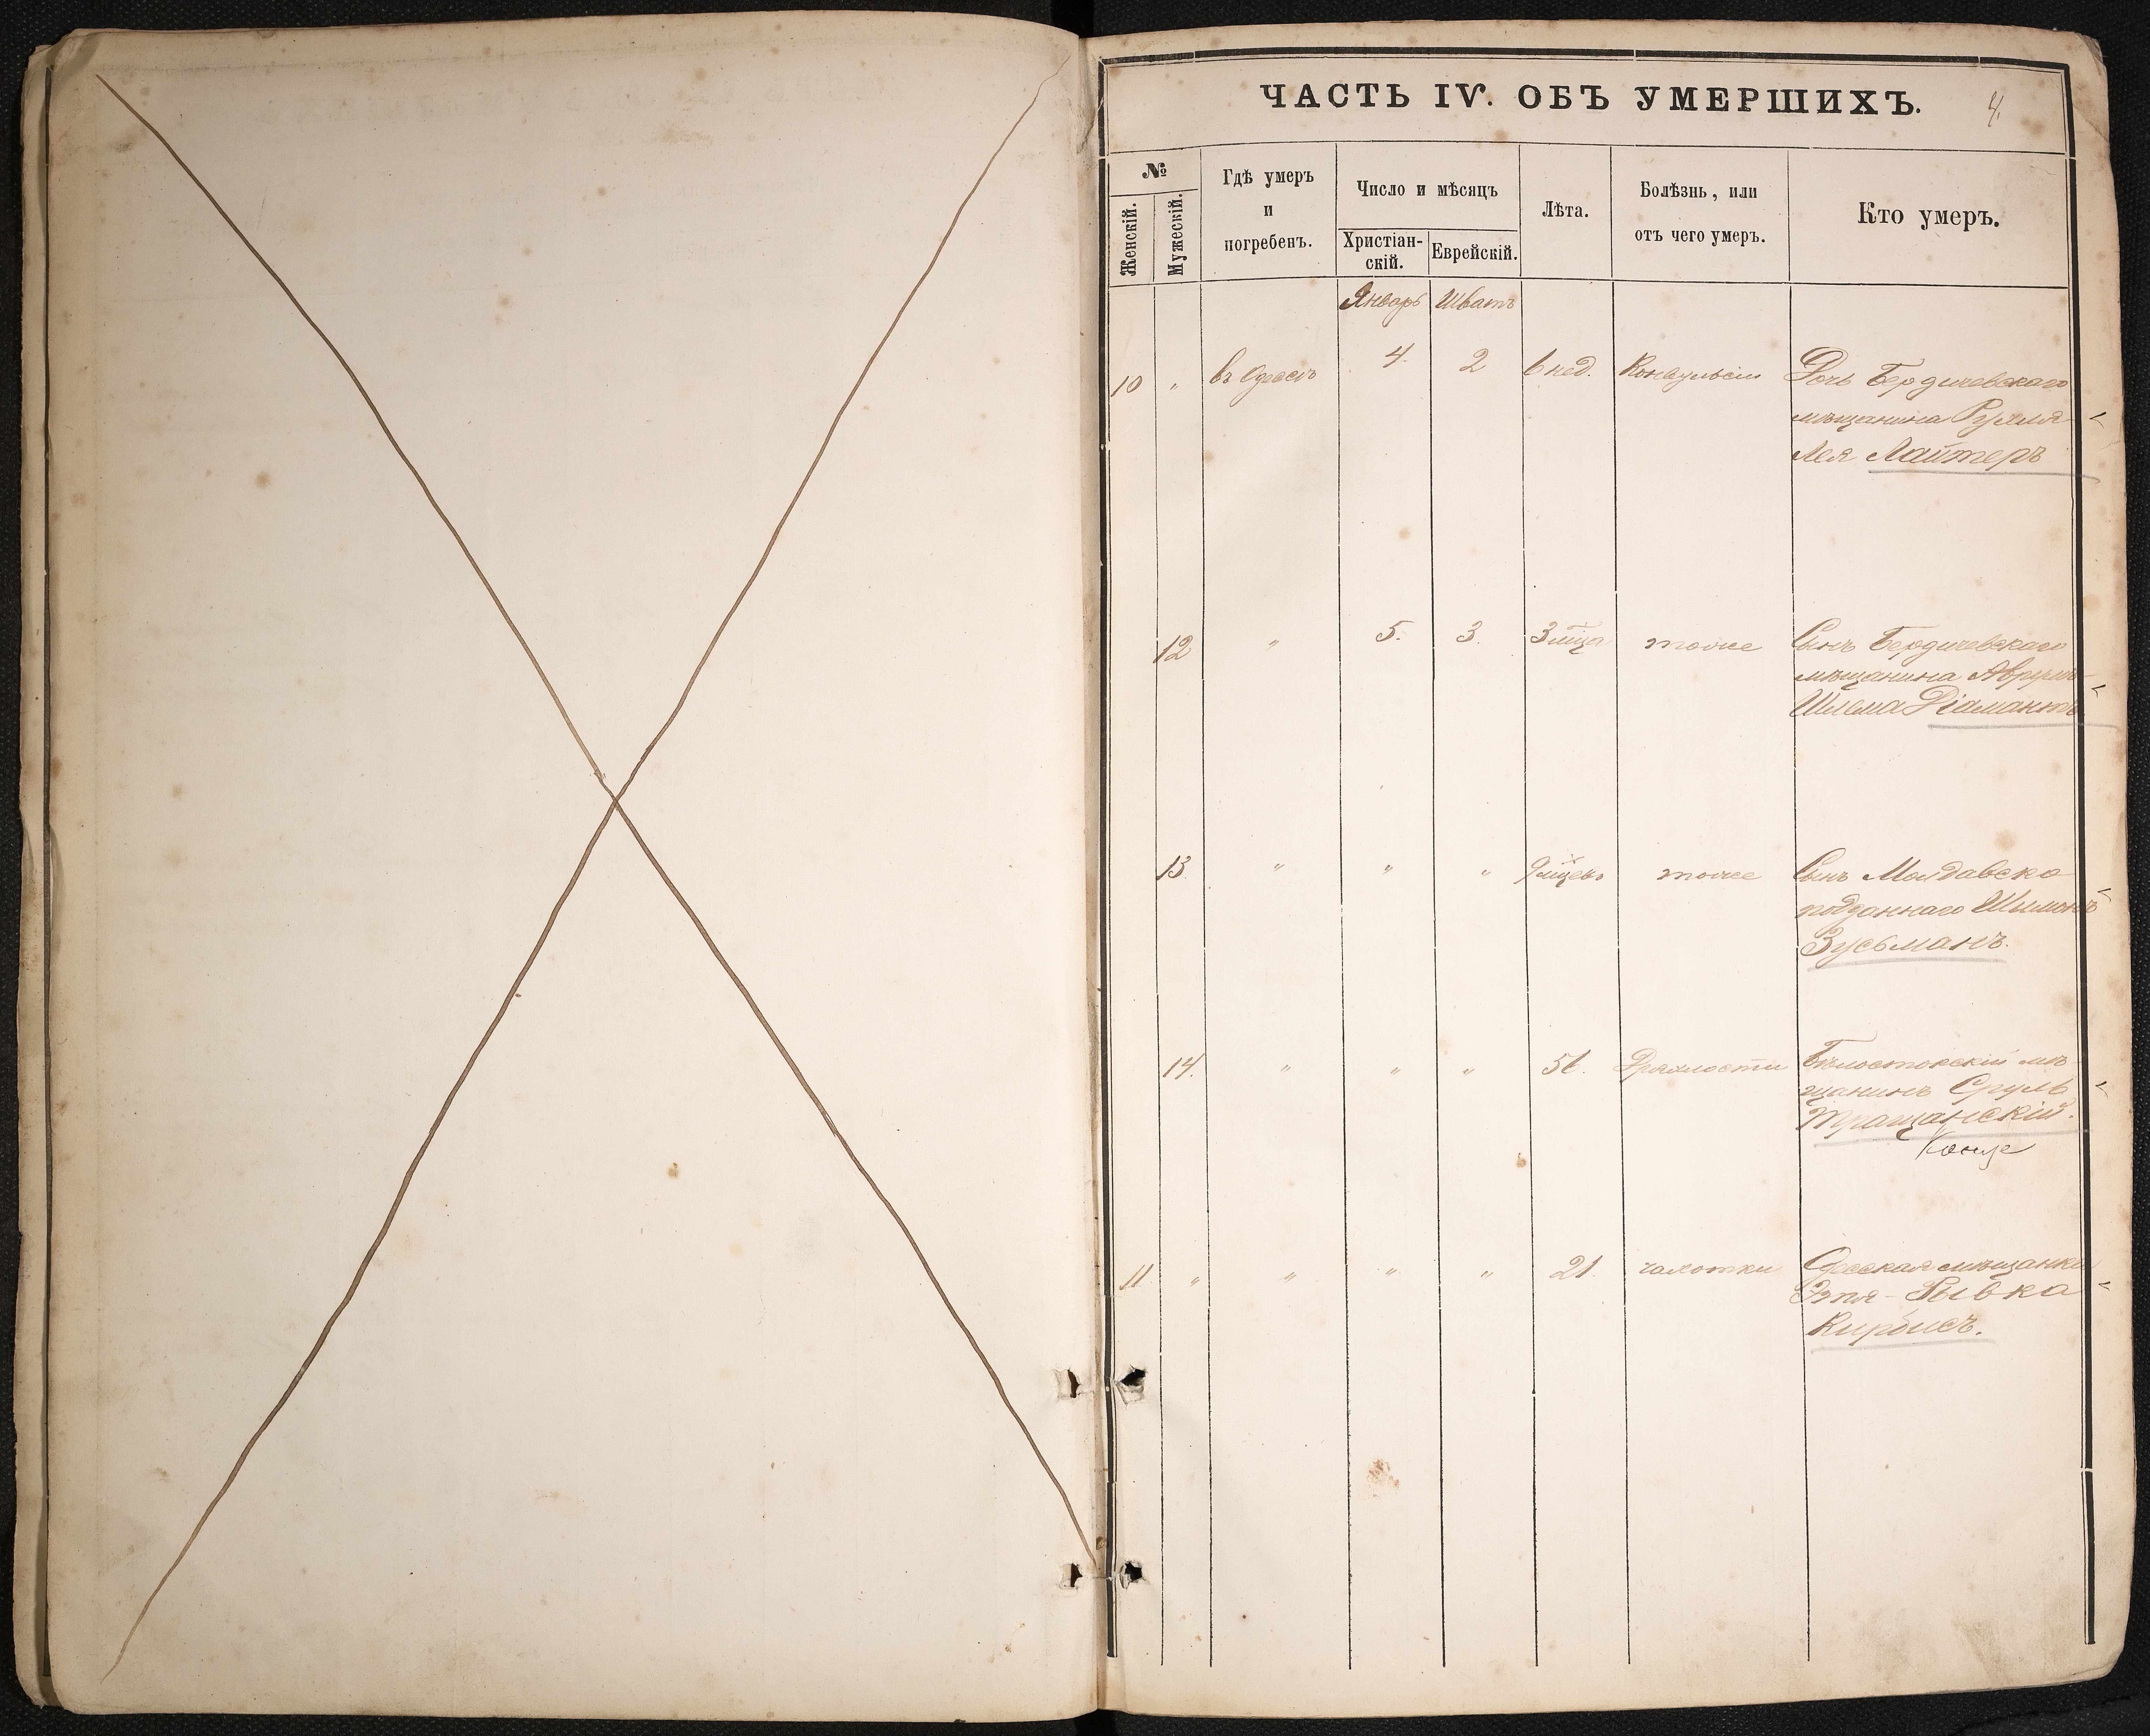 ЧАСТЬ IV. ОБЪ УМЕРШИХЪ. 4.
№
Женскій. Мужескій.
Гдѣ умеръ
и
погребенъ.
Число и мѣсяцъ
Христіан-
скій.
Еврейскій.
Лѣта.
Болѣзнь, или
отъ чего умеръ.
Кто умеръ.
Январь Шватъ
10 " въ Одессѣ 4. 2 6 нед. Конвульсіи Дочь Бердичевскаго
мѣщанина Рухля-
Лея Лайтеръ
12 " 5. 3. 3 мца тоже Сынъ Бердичевскаго
мѣщанина Аврумъ-
Шлема Діамантъ
13 " " " 9 мцевъ тоже Сынъ Молдавско
подданнаго Шимонъ
Зусьманъ.
14. " " " Дряхлости Бѣлостокскій мѣ-
щанинъ Сруль
Тращанскій.
11 " " " " 21 чахотки Одесская мѣщанка
Этя-Рывка
Кирбисъ.